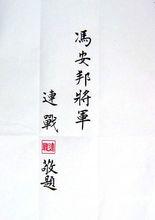 馮安邦將軍
連戰
連戰
敬題